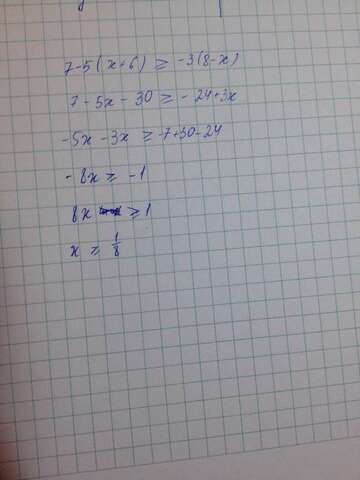 7-5(x+6) ≥ -3(8-x)
7 - 5x - 30 ≥ - 24+3x
-5x - 3x ≥ -7+30-24
- 8x ≥ -1
8x ≥ 1
x ≥ 1/8